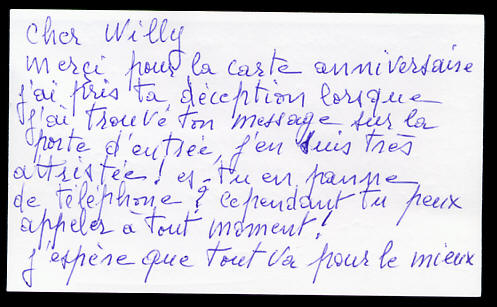 Cher Willy
merci pour la carte anniversaise
j'ai pris ta déception lorsque
j'ai trouvé ton message sur la
porte d'entrée, j'en suis très
attristée! es-tu en panne
de téléphone? cependant tu peux
appeler à tout moment!
j'espère que tout va pour le mieux